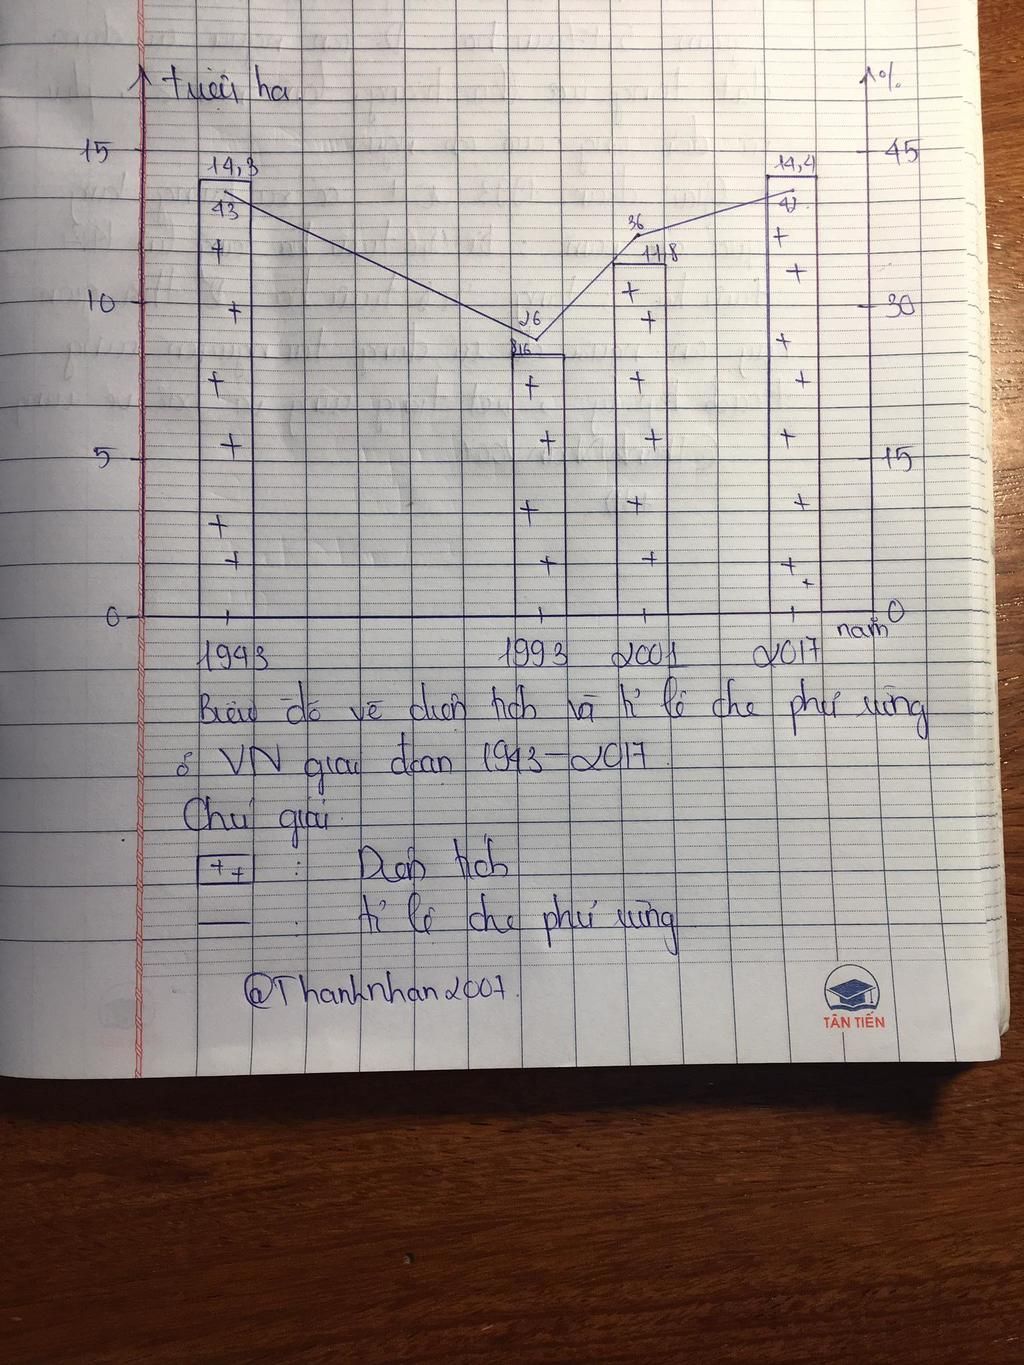 triệu ha
%
15
14,3
14,4
45
43
41
36
11,8
10
26
8,6
30
5
15
0
0
năm
1943 1993 2001 2017
Biểu đồ về diện tích và tỉ lệ che phủ rừng
ở VN giai đoạn 1943-2017
Chú giải
++ : Diện tích
: tỉ lệ che phủ rừng
@Thanhnhan2007.
TÂN TIẾN